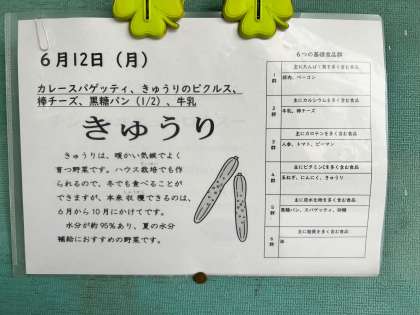 6月12日（月）
カレースパゲッティ、きゅうりのピクルス、
棒チーズ、黒糖パン（1/2）、牛乳
きゅうり
きゅうりは、暖かい気候でよく
育つ野菜です。ハウス栽培でも作
られるので、冬でも食べることが
できますが、本来収穫できるのは、
6月から10月にかけてです。
水分が約95％あり、夏の水分
補給におすすめの野菜です。
6つの基礎食品群
主にたんぱく質を多く含む食品
1群
豚肉、ベーコン
主にカルシウムを多く含む食品
2群
牛乳、棒チーズ
主にカロテンを多く含む食品
3群
人参、トマト、ピーマン
主にビタミンCを多く含む食品
4群
玉ねぎ、にんにく、きゅうり
主に炭水を多く含む食品
5群
黒糖パン、スパゲッティ、砂糖
主に脂質を多く含む食品
6群
油